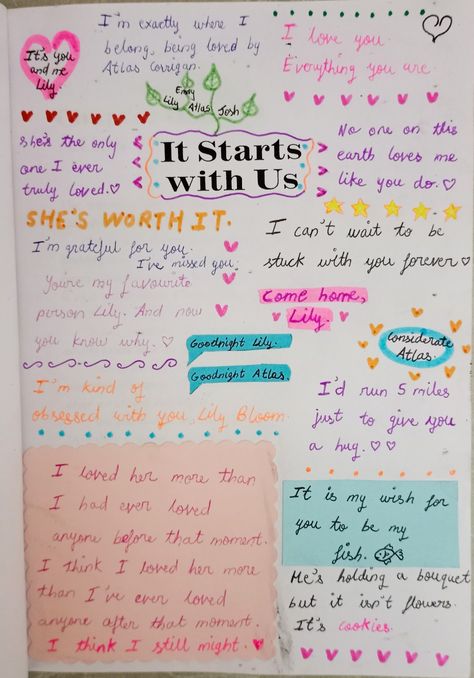 It's you
and me
Lily.
I'm exactly where I
belong, being loved by
Atlas Corrigan.
I love you
Everything you are.
Emmy
Lily Atlas Josh
She's the only
one I ever
truly loved.♡
It Starts
with Us
No one on this
earth loves me
like you do.♡
SHE'S WORTH IT.
I'm grateful for you.
I've missed you.
I can't wait to be
stuck with you forever♡
You're my favourite
person Lily. And now
you know why.♡
Come home,
Lily.
Goodnight Lily.
Goodnight Atlas.
Considerate
Atlas.
I'm kind of
obsessed with you, Lily Bloom.
I'd run 5 miles
just to give you
a hug.♡♡
I loved her more than
I had ever loved
anyone before that moment.
I think I loved her more
than I've ever loved
anyone after that moment.
I think I still might.♥
It is my wish for
you to be my
fish.
He's holding a bouquet
but it isn't flowers.
It's cookies.